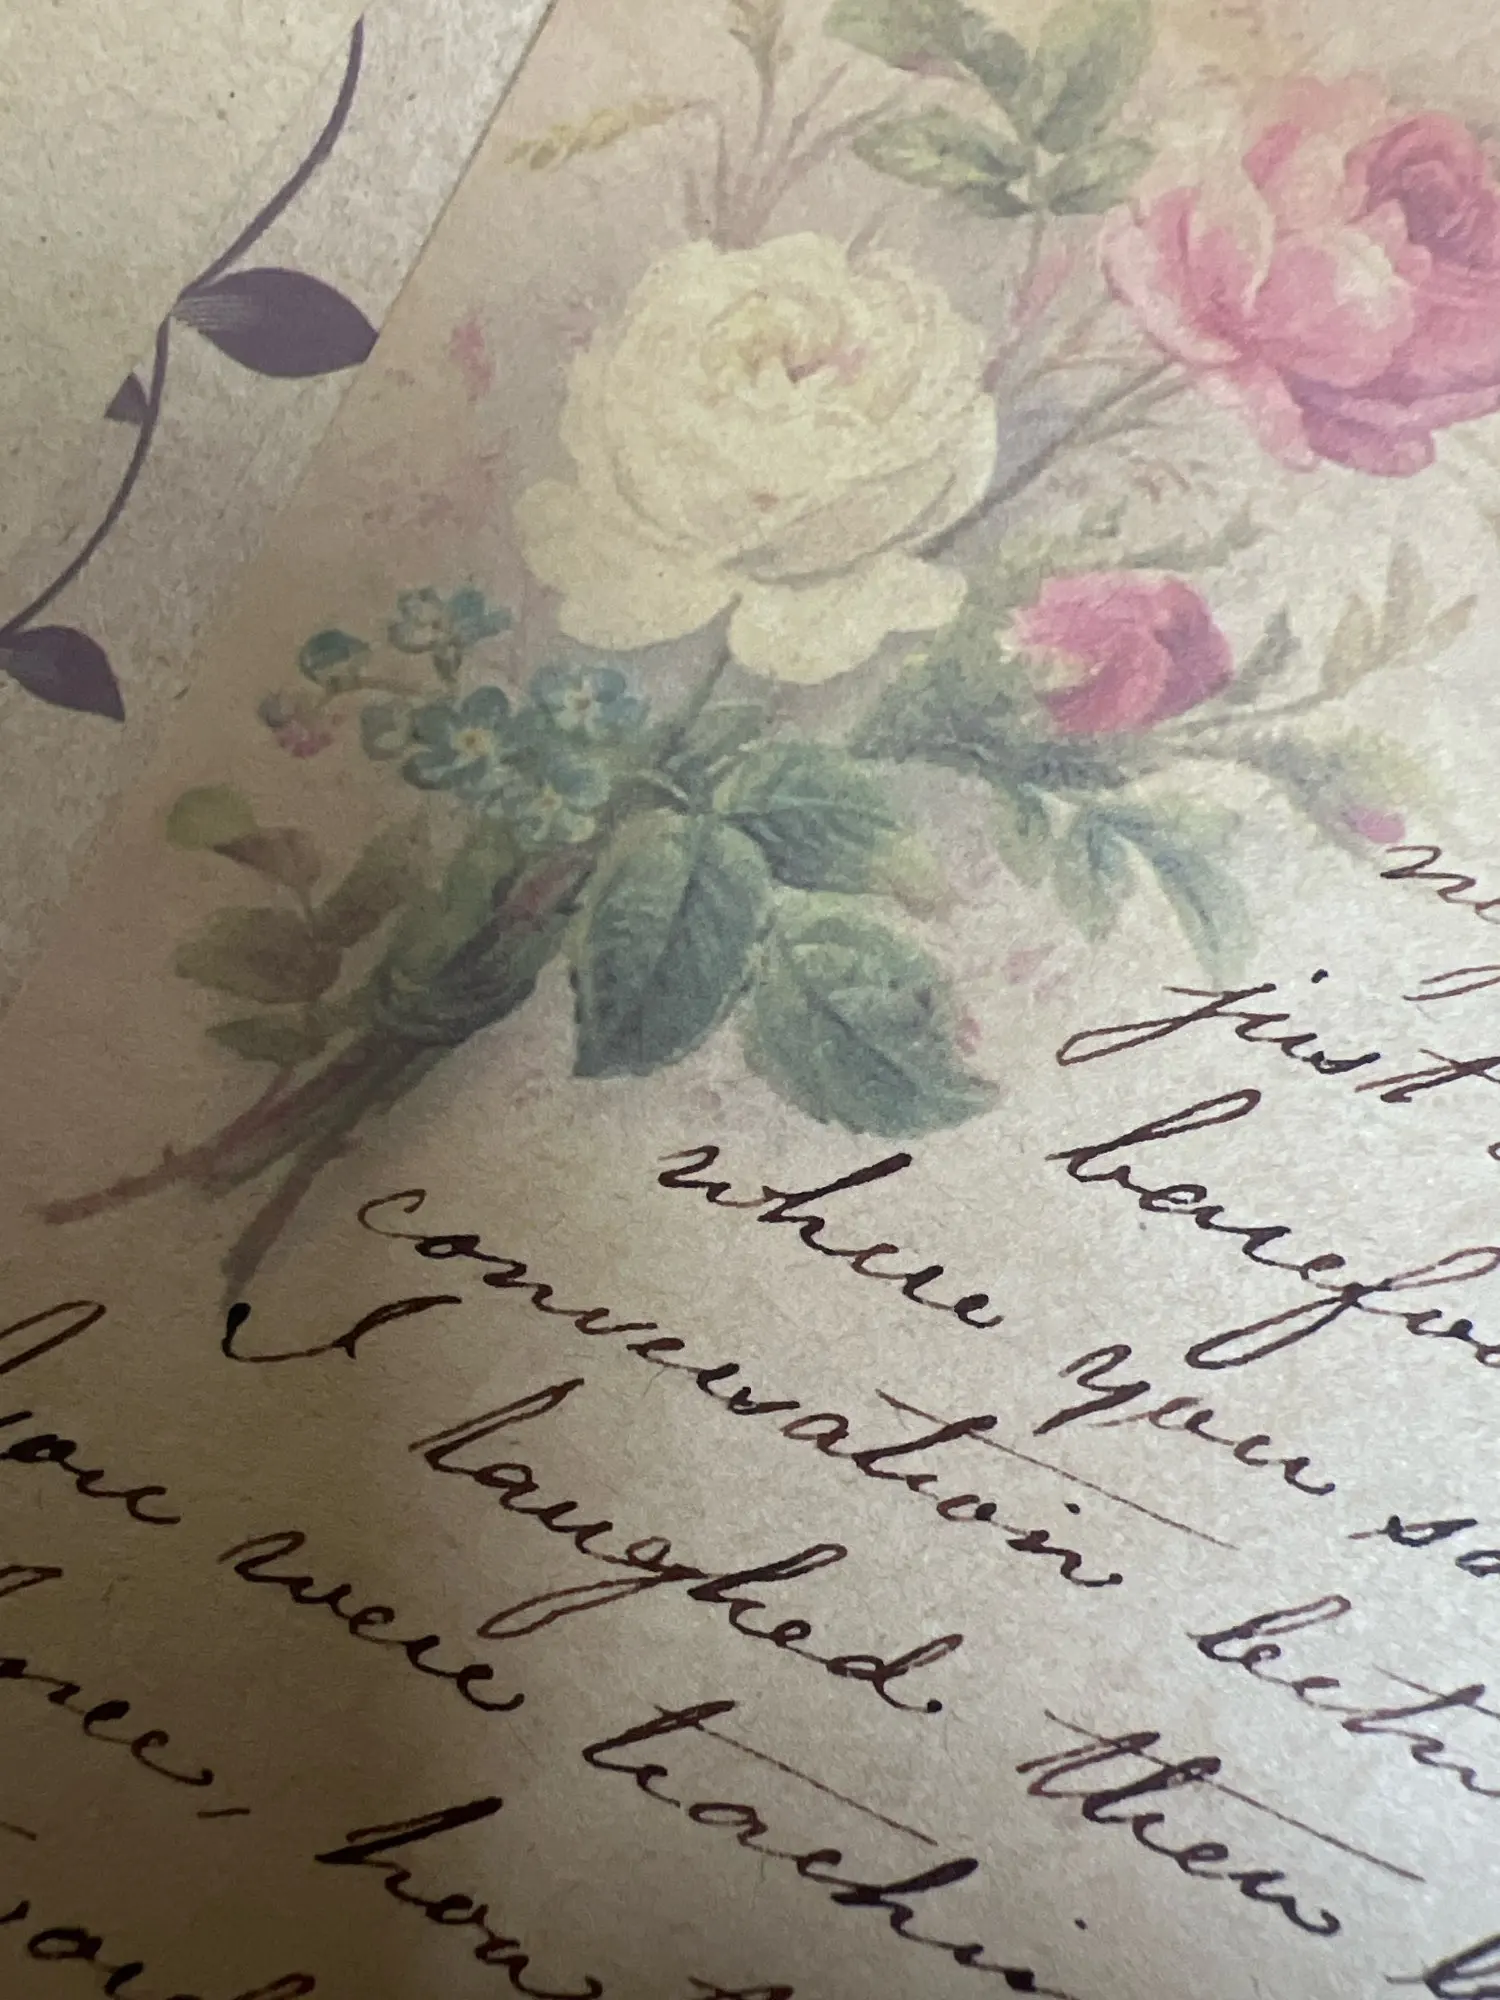 just
barefoo
where you so
conversation betw
I laughed then
you were teachin
how